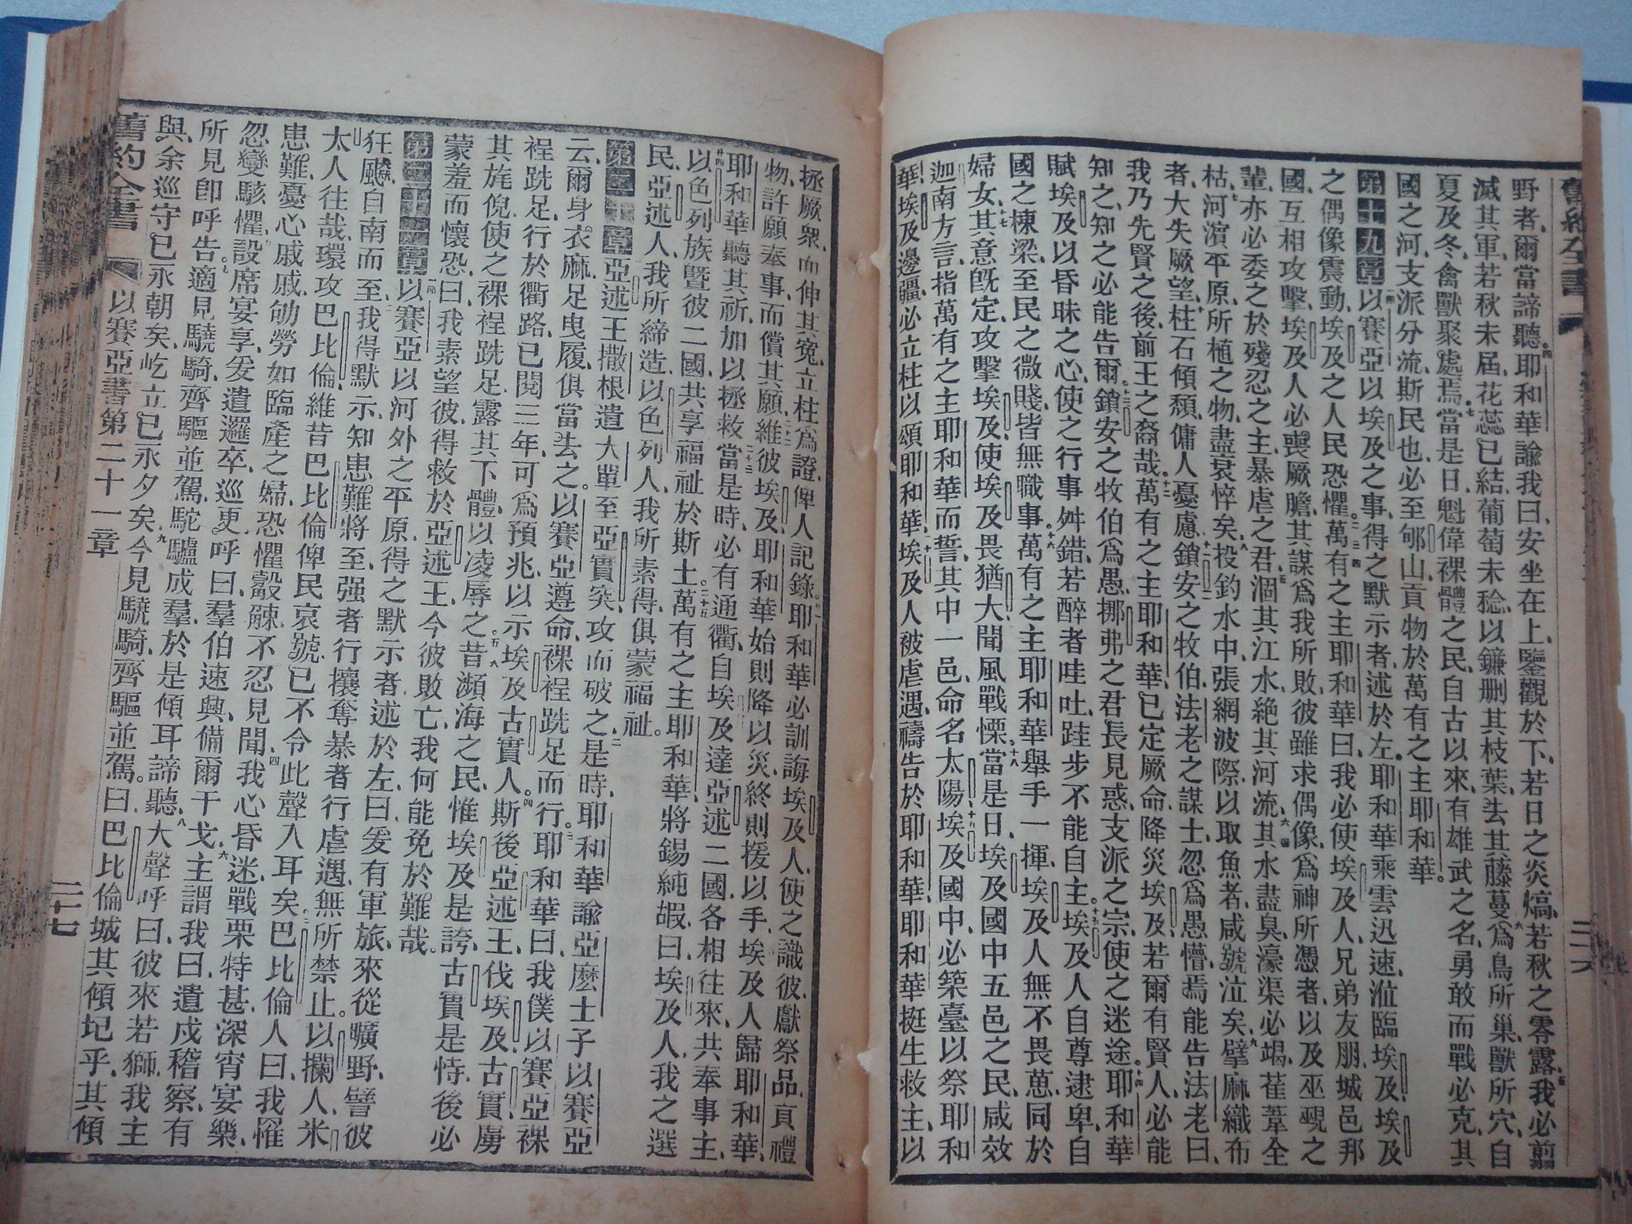 舊約全書
野者、爾當諦聽、耶和華諭我曰、安坐在上、鑒觀於下、若日之炎熇、若秋之零露、我必翦
滅其軍、若秋未屆、花蕊已結、葡萄未稔、以鐮刪其枝葉、去其藤蔓、爲鳥所巢、獸所穴、自
夏及冬、禽獸聚處焉、當是日、魁偉裸體之民、自古以來、有雄武之名、勇敢而戰必克、其
國之河、支派分流、斯民也、必至郇山、貢物於萬有之主耶和華。
第十九章以賽亞以埃及之事、得之默示者、述於左、耶和華乘雲迅速、涖臨埃及、埃及
之偶像震動、埃及之人民恐懼、萬有之主耶和華曰、我必使埃及人、兄弟友朋城邑邦
國、互相攻擊、埃及人必喪厥膽、其謀爲我所敗、彼雖求偶像、爲神所憑者、以及巫覡之
輩、亦必委之於殘忍之主、暴虐之君、涸其江水、絕其河流、其水盡臭、濠渠必竭、萑葦全
枯、河濱平原、所植之物、盡衰悴矣、投釣水中、張網波際、以取魚者、咸號泣矣、擘麻織布
者、大失厥望、柱石傾頹、傭人憂慮、鎖安之牧伯、法老之謀士、忽爲愚懵、焉能告法老曰、
我乃先賢之後、前王之裔哉、萬有之主耶和華、已定厥命、降災埃及、若爾有賢人、必能
知之、知之必能告爾、鎖安之牧伯爲愚、挪弗之君長見惑、支派之宗、使之迷途、耶和華
賦埃及以昏昧之心、使之行事舛錯、若醉者哇吐、跬步不能自主、埃及人自尊逮卑、自
國之棟梁、至民之微賤、皆無職事、萬有之主耶和華、舉手一揮、埃及人無不畏葸、同於
婦女、其意旣定、攻擊埃及、使埃及畏猶大、聞風戰慄、當是日、埃及國中五邑之民、咸效
迦南方言、指萬有之主耶和華而誓、其中一邑、命名太陽、埃及國中、必築臺以祭耶和
華、埃及邊疆、必立柱以頌耶和華、埃及人被虐遇、禱告於耶和華、耶和華挺生救主、以
拯厥衆、而伸其冤、立柱爲證、俾人記錄、耶和華必訓誨埃及人、使之識彼、獻祭品、貢禮
物、許願奉事、而償其願、維彼埃及、耶和華始則降以災、終則援以手、埃及人歸耶和華、
耶和華聽其祈、加以拯救、當是時、必有通衢、自埃及達亞述、二國各相往來、共奉事主、
以色列族曁彼二國、共享福祉於斯土、萬有之主耶和華、將錫純嘏、曰、埃及人、我之選
民、亞述人、我所締造、以色列人、我所素得、俱蒙福祉。
第二十章亞述王撒根、遣大單至亞實突、攻而破之、是時、耶和華諭亞麽士子以賽亞
云、爾身衣麻、足曳履、俱當去之。以賽亞遵命、裸裎跣足而行。耶和華曰、我僕以賽亞、裸
裎跣足、行於衢路、已閱三年、可爲預兆、以示埃及古實人、斯後亞述王伐埃及古實、虜
其旄倪、使之裸裎跣足、露其下體、以凌辱之、昔瀕海之民、惟埃及是誇、古實是恃、後必
蒙羞而懷恐、曰、我素望彼、得救於亞述王、今彼敗亡、我何能免於難哉、
第二十一章以賽亞以河外之平原、得之默示者、述於左、曰、爰有軍旅、來從曠野、譬彼
狂飇、自南而至、我得默示、知患難將至、强者行攘奪、暴者行虐遇、無所禁止。以攔人米
太人往哉、環攻巴比倫、維昔巴比倫俾民哀號、已不令此聲入耳矣、巴比倫人曰、我罹
患難、憂心戚戚、劬勞如臨產之婦、恐懼觳觫、不忍見聞、我心昏迷、戰栗特甚、深宵宴樂、
忽變駭懼、設席宴享、爰遣邏卒、巡更、呼曰、羣伯速興、備爾干戈、主謂我曰、遣戍稽察、有
所見卽呼告、適見驍騎、齊驅並駕、駝驢成羣、於是傾耳諦聽、大聲呼曰、彼來若獅、我主
與、余巡守已永朝矣、屹立已永夕矣、今見驍騎、齊驅並駕、曰、巴比倫城其傾圮乎、其傾
舊約全書 以賽亞書第二十一章 二十七